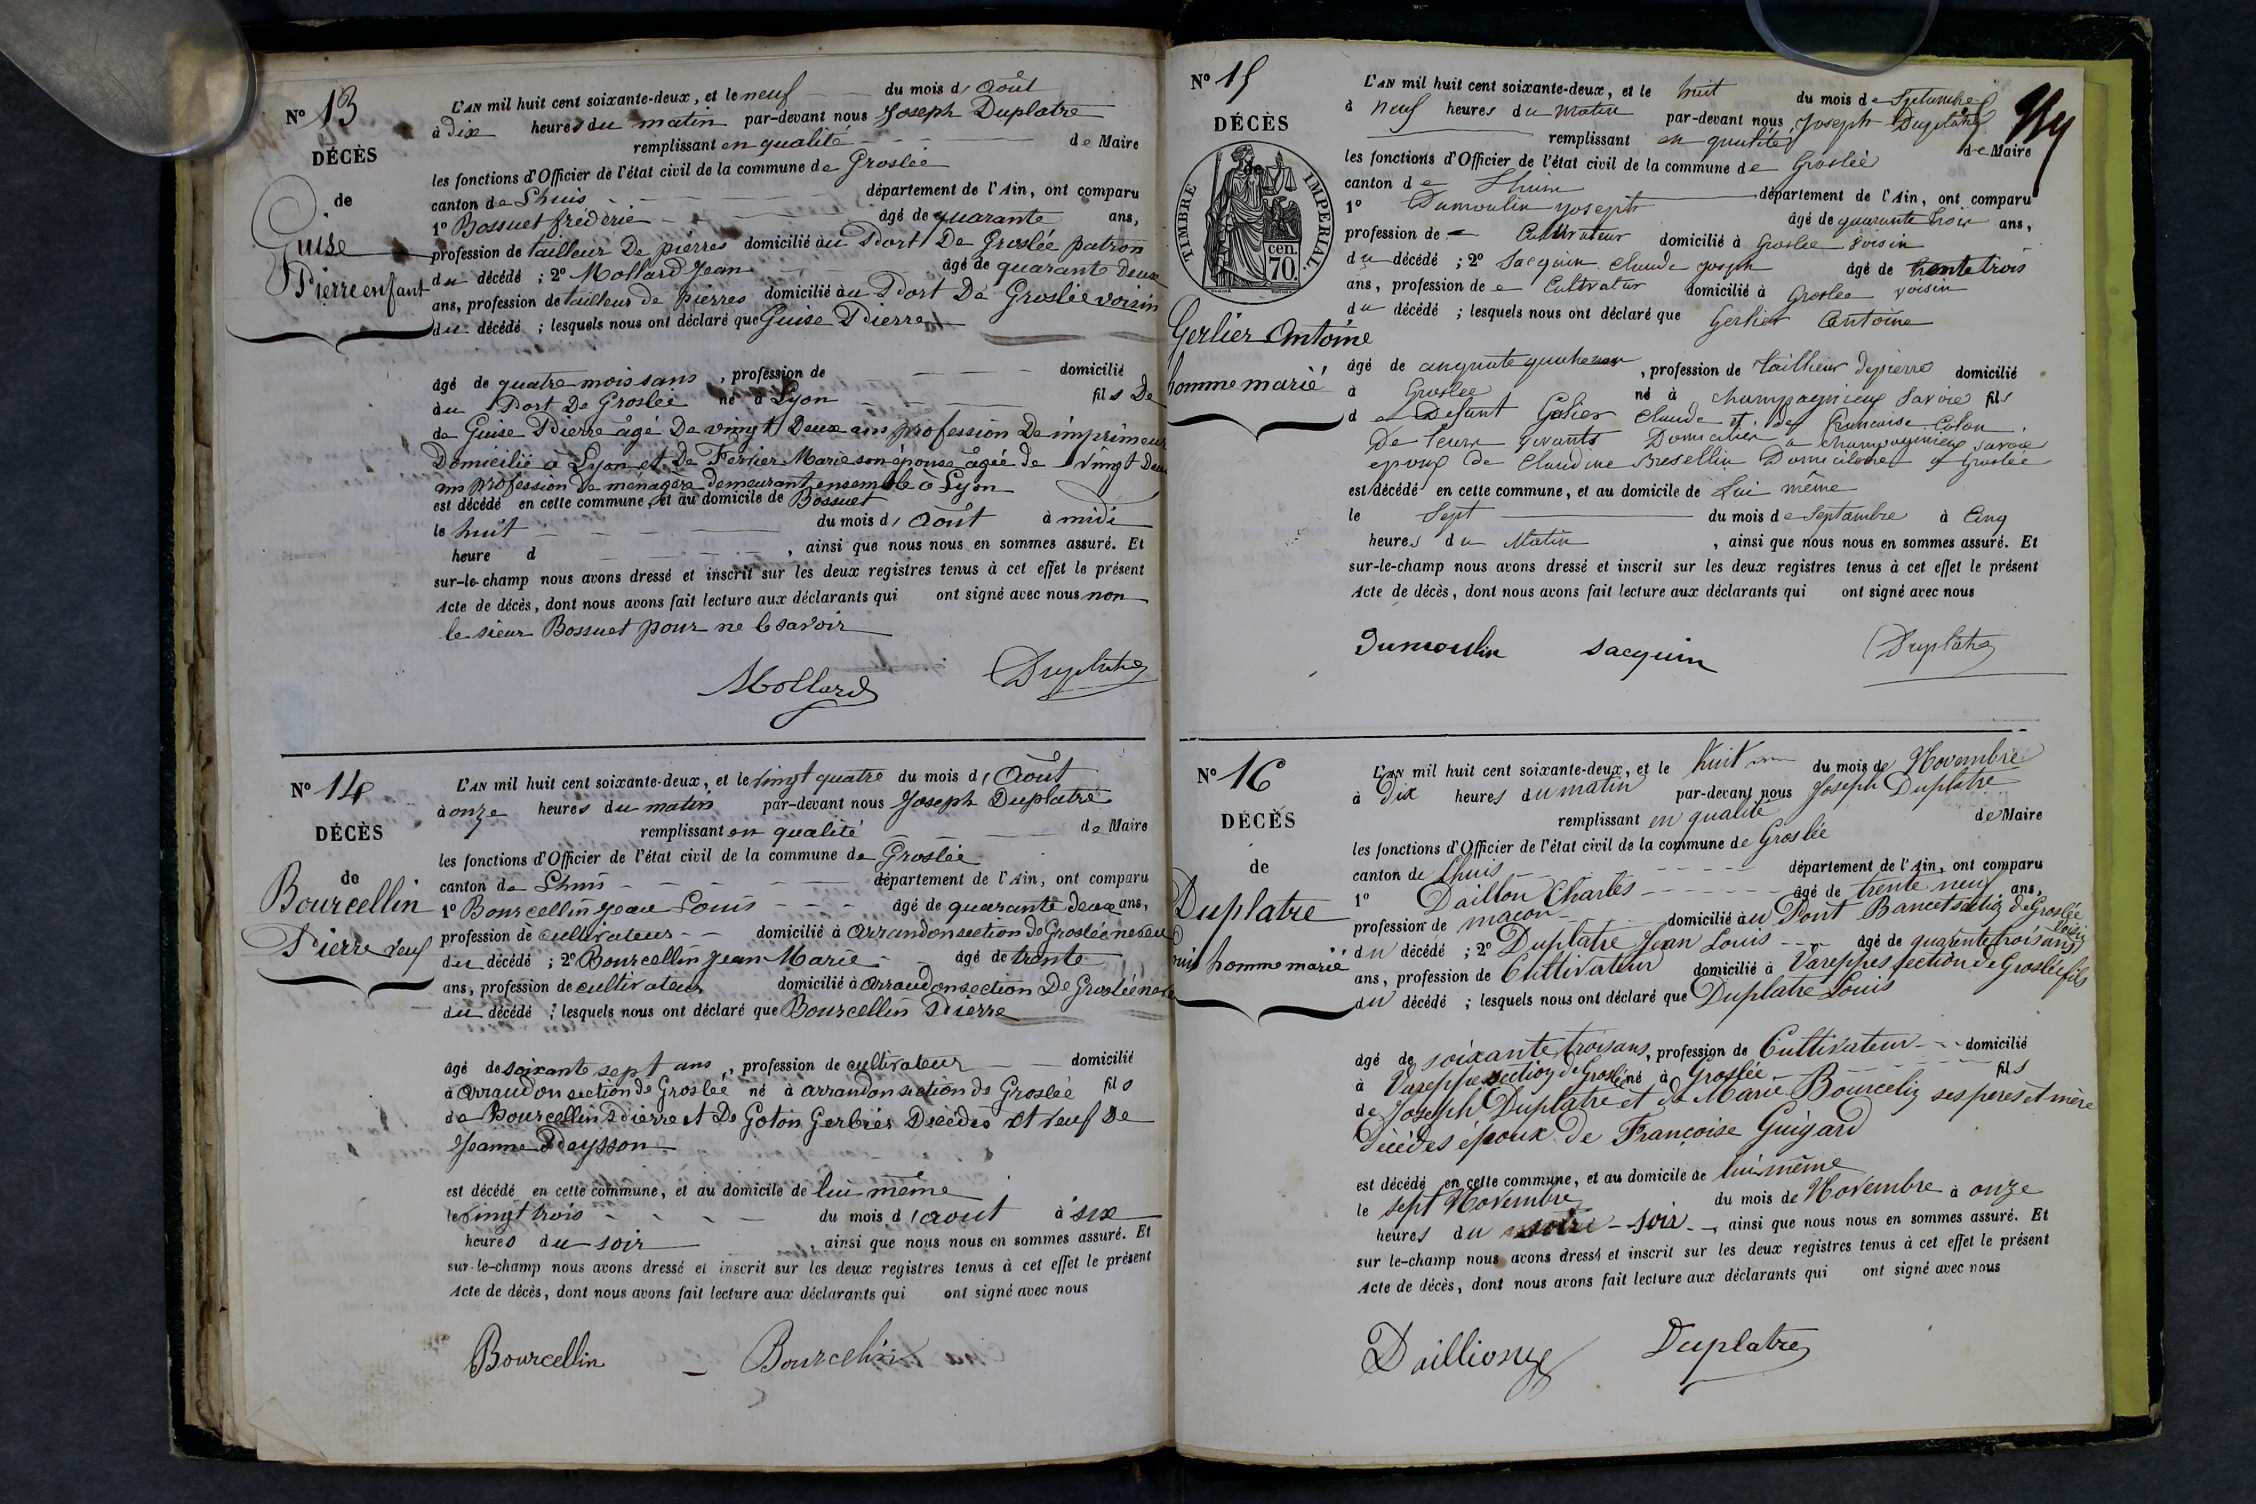 N° 13
DÉCÈS
de
Guise
Pierre enfant
L'AN mil huit cent soixante-deux, et le neuf du mois d'Août
à dix heures du matin par-devant nous Joseph Duplatre
remplissant en qualité de Maire
les fonctions d'Officier de l'état civil de la commune de Groslée
canton de Lhuis département de l'Ain, ont comparu
1° Bossuet frédéric âgé de quarante ans,
profession de tailleur De pierres domicilié au Port De Groslée patron
du décédé ; 2° Mollard Jean âgé de quarante deux
ans, profession de tailleur de pierres domicilié au Port De Groslée voisin
du décédé ; lesquels nous ont déclaré que Guise Pierre
âgé de quatre mois sans , profession de domicilié
au Port De Groslée né à Lyon fils De
de Guise Pierre âgé De vingt Deux ans profession De imprimeur
Domicilié à Lyon et De Ferrier Marie son épouse âgée de vingt Deux
ans profession de ménagère demeurant ensemble à Lyon
est décédé en cette commune, et au domicile de Bossuet
le huit du mois d'Août à midi
heure d , ainsi que nous nous en sommes assuré. Et
sur-le-champ nous avons dressé et inscrit sur les deux registres tenus à cet effet le présent
Acte de décès, dont nous avons fait lecture aux déclarants qui ont signé avec nous non
le sieur Bossuet pour ne le savoir
Mollard Duplatre
N° 14
DÉCÈS
de
Bourcellin
Pierre veuf
L'AN mil huit cent soixante-deux, et le vingt quatre du mois d'Août
à onze heures du matin par-devant nous Joseph Duplatre
remplissant en qualité de Maire
les fonctions d'Officier de l'état civil de la commune de Groslée
canton de Lhuis département de l'Ain, ont comparu
1° Bourcellin Jean Louis âgé de quarante deux ans,
profession de cultivateur domicilié à arrandon section de Groslée neveu
du décédé ; 2° Bourcellin Jean Marie âgé de trente
ans, profession de cultivateur domicilié à arrandon section De Groslée
du décédé ; lesquels nous ont déclaré que Bourcellin Pierre
âgé de soixante sept ans , profession de cultivateur domicilié
à arrandon section de Groslée né à arrandon section de Groslée fils
de Bourcellin Pierre et De Goton Gerbier Décédés et veuf De
Jeanne Peysson
est décédé en cette commune, et au domicile de lui même
le vingt trois du mois d'aout à six
heures du soir , ainsi que nous nous en sommes assuré. Et
sur-le-champ nous avons dressé et inscrit sur les deux registres tenus à cet effet le présent
Acte de décès, dont nous avons fait lecture aux déclarants qui ont signé avec nous
Bourcellin Bourcelin
N° 15
DÉCÈS
de
TIMBRE IMPERIAL.
cen.
70.
Gerlier Antoine
homme marié
L'AN mil huit cent soixante-deux, et le huit du mois de Septembre
à neuf heures du matin par-devant nous Joseph Duplatre
remplissant en qualité de Maire
les fonctions d'Officier de l'état civil de la commune de Groslée
canton de Lhuis département de l'Ain, ont comparu
1° Dumoulin Joseph âgé de quarante trois ans,
profession de Cultivateur domicilié à Groslée voisin
du décédé ; 2° Sacquin Claude Joseph âgé de trente trois
ans, profession de Cultivatur domicilié à Groslee voisin
du décédé ; lesquels nous ont déclaré que Gerlier Antoine
âgé de cinquante quatre , profession de tailleur depierre domicilié
à Groslee né à champagnieux Savoie fils
de Defunt Gelier Claude et de francoise Colon
De leurs vivants Domicilier a champagnieux savoie
epoux de Claudine Bresellin Domicilée a Groslée
est décédé en cette commune, et au domicile de Lui même
le Sept du mois de Septambre à Cinq
heures du Matin , ainsi que nous nous en sommes assuré. Et
sur-le-champ nous avons dressé et inscrit sur les deux registres tenus à cet effet le présent
Acte de décès, dont nous avons fait lecture aux déclarants qui ont signé avec nous
Dumoulin sacquin Duplatre
N° 16
DÉCÈS
de
Duplatre
Louis homme marié
L'AN mil huit cent soixante-deux, et le huit du mois de Novembre
à dix heures du matin par-devant nous Joseph Duplatre
remplissant en qualité de Maire
les fonctions d'Officier de l'état civil de la commune de Groslée
canton de Lhuis département de l'Ain, ont comparu
1° Daillon Charles âgé de trente neuf ans,
profession de maçon domicilié au Pont Bancet section de Groslée voisin
du décédé ; 2° Duplatre Jean Louis âgé de quarente trois ans
ans, profession de Cultivateur domicilié à Vareppes section de Groslée fils
du décédé ; lesquels nous ont déclaré que Duplatre Louis
âgé de soixante trois ans, profession de Cultivateur domicilié
à Vareppe section de Groslé né à Groslée fils
de Joseph Duplatre et de Marie Bourcelin ses peres et mère
décédés époux de Françoise Guigard
est décédé en cette commune, et au domicile de lui même
le sept Novembre du mois de Novembre à onze
heures du soir , ainsi que nous nous en sommes assuré. Et
sur le-champ nous avons dressé et inscrit sur les deux registres tenus à cet effet le présent
Acte de décès, dont nous avons fait lecture aux déclarants qui ont signé avec nous
Daillion Duplatre